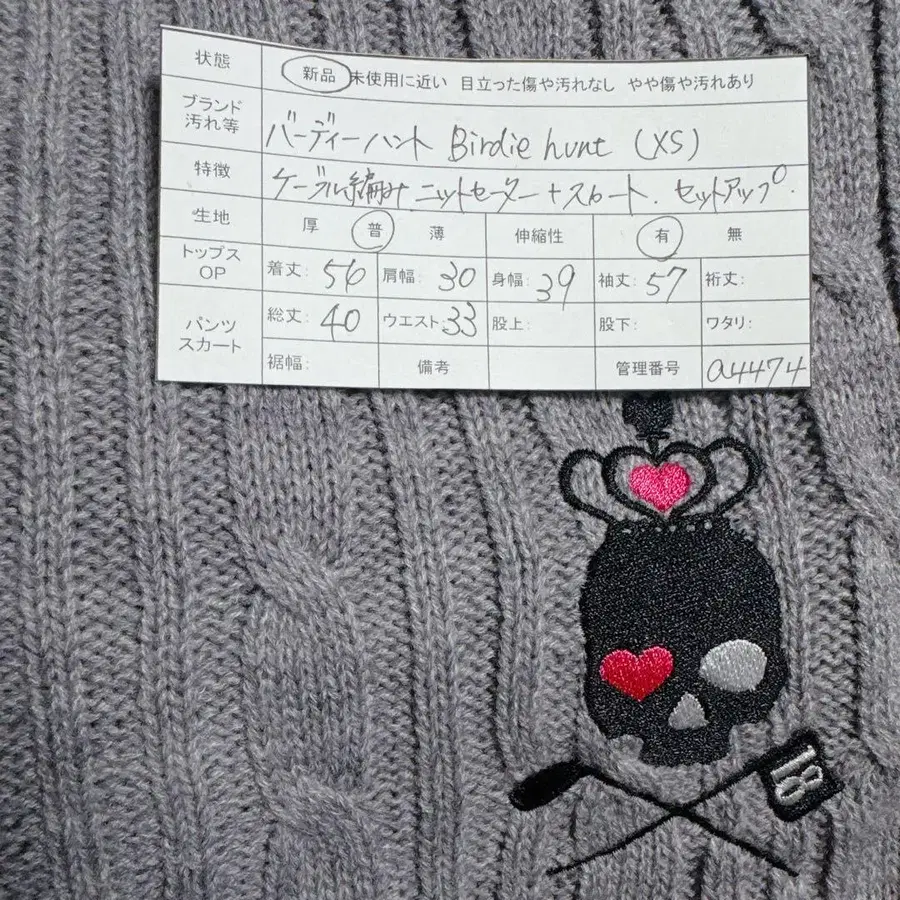 状態 新品 未使用に近い 目立った傷や汚れなし やや傷や汚れあり
ブランド
汚れ等 バーディーハント Birdie hunt (XS)
特徴 ケーブル編み.ニットセーター+スカート.セットアップ.
生地 厚 普 薄 伸縮性 有 無
トップス
OP 着丈: 56 肩幅: 30 身幅: 39 袖丈: 57 裄丈:
パンツ
スカート 総丈: 40 ウエスト: 33 股上: 股下: ワタリ:
裾幅: 備考 管理番号 a4474
18